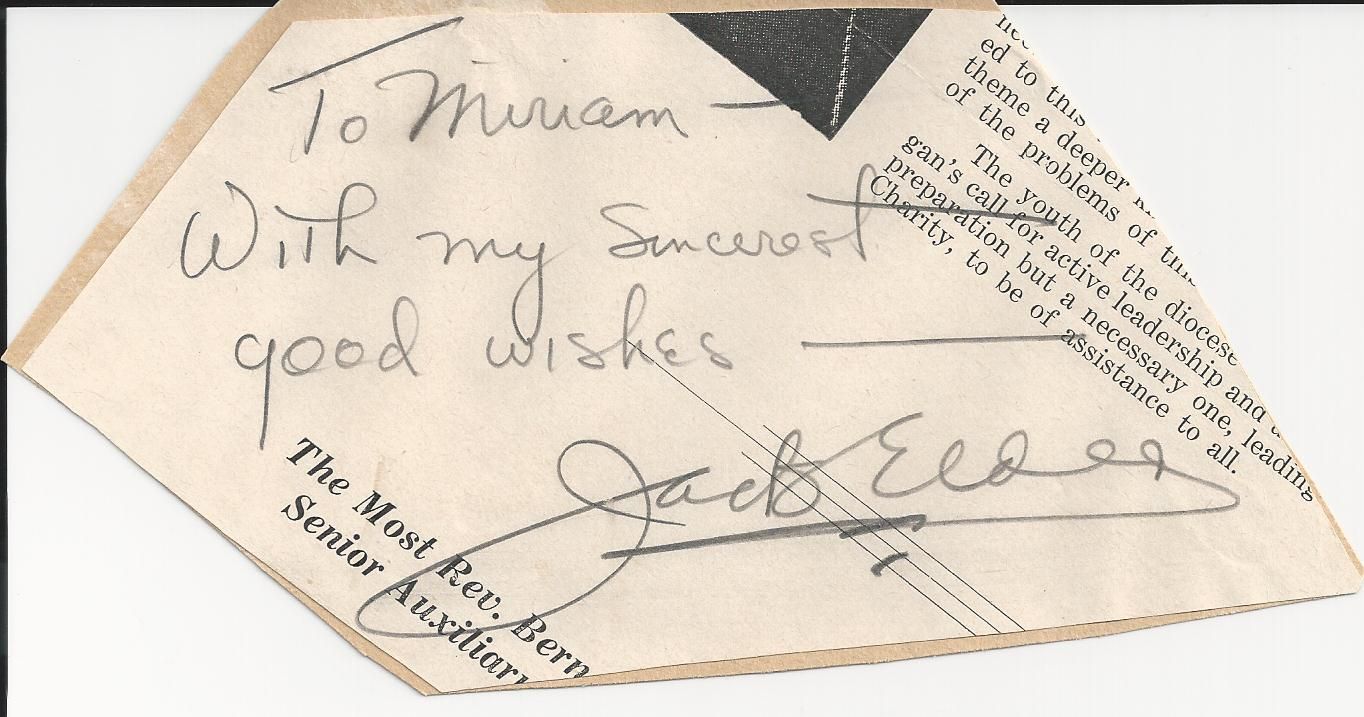 To Miriam —
With my Sincerest
good wishes —
Jack Elder
ed to this
theme a deeper
of the problems of this
The youth of the diocese
gan's call for active leadership and a
preparation but a necessary one, leading
Charity, to be of assistance to all.
The Most Rev. Bern
Senior Auxiliary